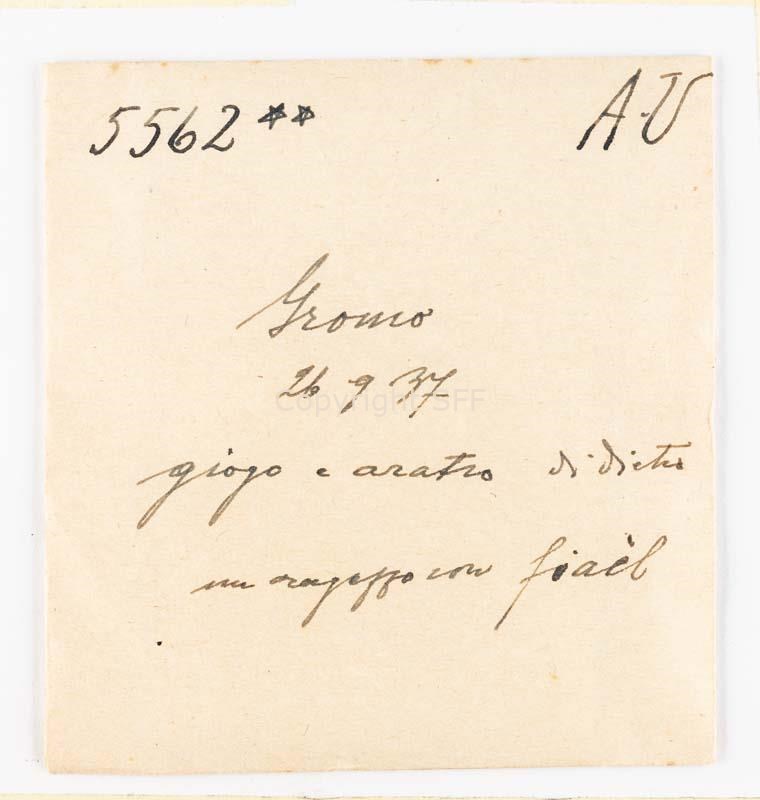 5562** A-V
Gromo
26 9 37
Copyright SFF
giogo e aratro di dietro
un ragazzo con fiaèl